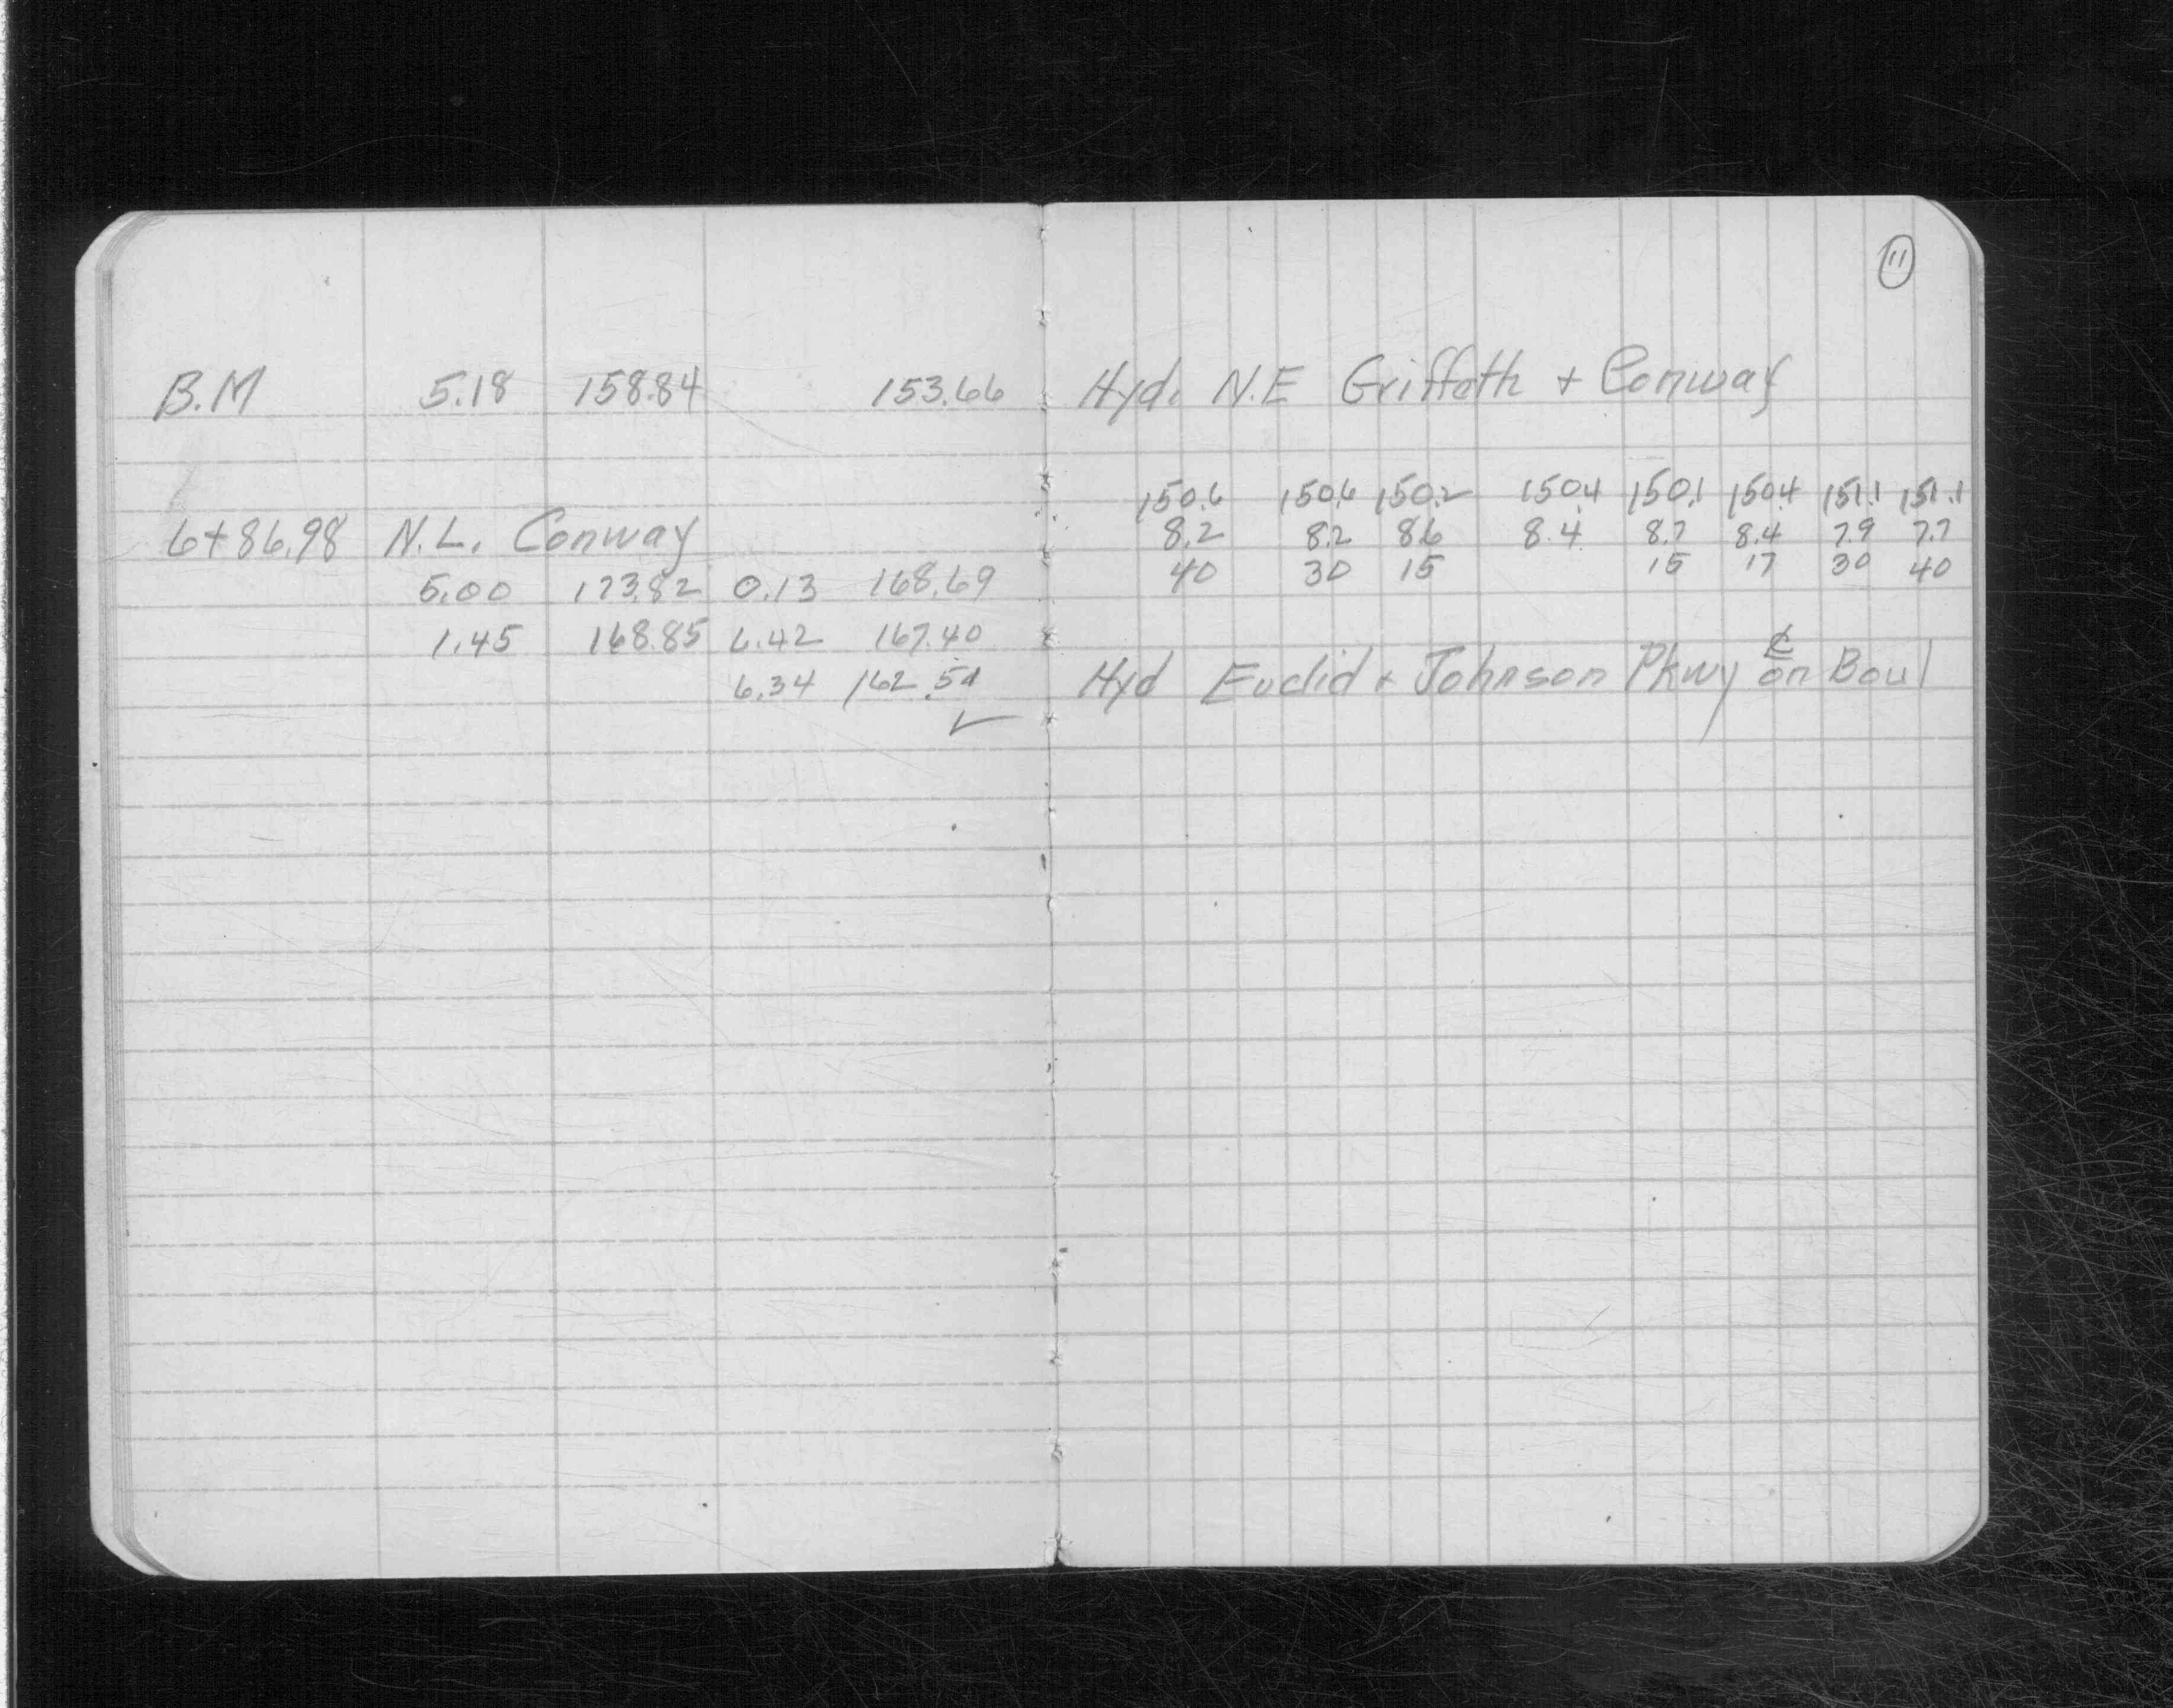 11
B.M 5.18 158.84 153.66 Hyd. N.E Griffeth + Conway
150.6 150.6 150.2 150.4 150.1 150.4 151.1 151.1
6+86.98 N.L. Conway 8.2 8.2 8.6 8.4 8.7 8.4 7.9 7.7
5.00 173.82 0.13 168.69 40 30 15 15 17 30 40
1.45 168.85 6.42 167.40
6.34 162.51 Hyd Euclid + Johnson Pkwy ℄ on Boul
✓